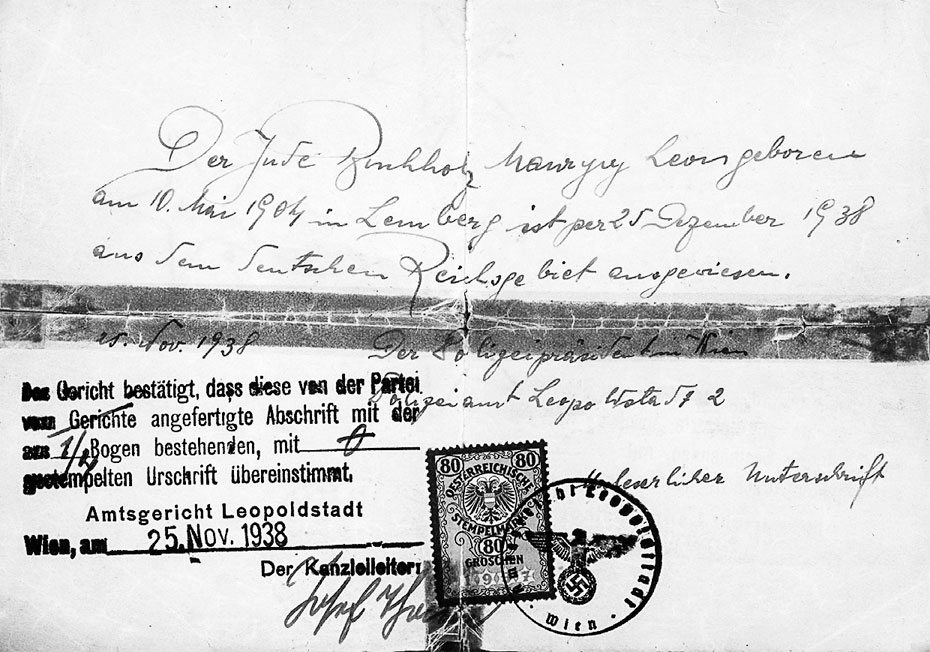 Der Jude Buchholz Maurycy Leon geboren
am 10. Mai 1904 in Lemberg ist per 25 Dezember 1938
aus dem deutschen Reichsgebiet ausgewiesen.
Nov. 1938
Der Polizeipräsident in Wien
Polizeiamt Leopoldstadt 2
Unleserlicher Unterschrift
Das Gericht bestätigt, dass diese von der Partei
vom Gerichte angefertigte Abschrift mit der
aus 1/2 Bogen bestehenden, mit 0
gestempelten Urschrift übereinstimmt.
Amtsgericht Leopoldstadt
Wien, am 25. Nov. 1938
Der Kanzleileiter:
Josef
80 80
OESTERREICHISCHE
STEMPELMARKE
80
GROSCHEN
Amtsgericht Leopoldstadt
Wien